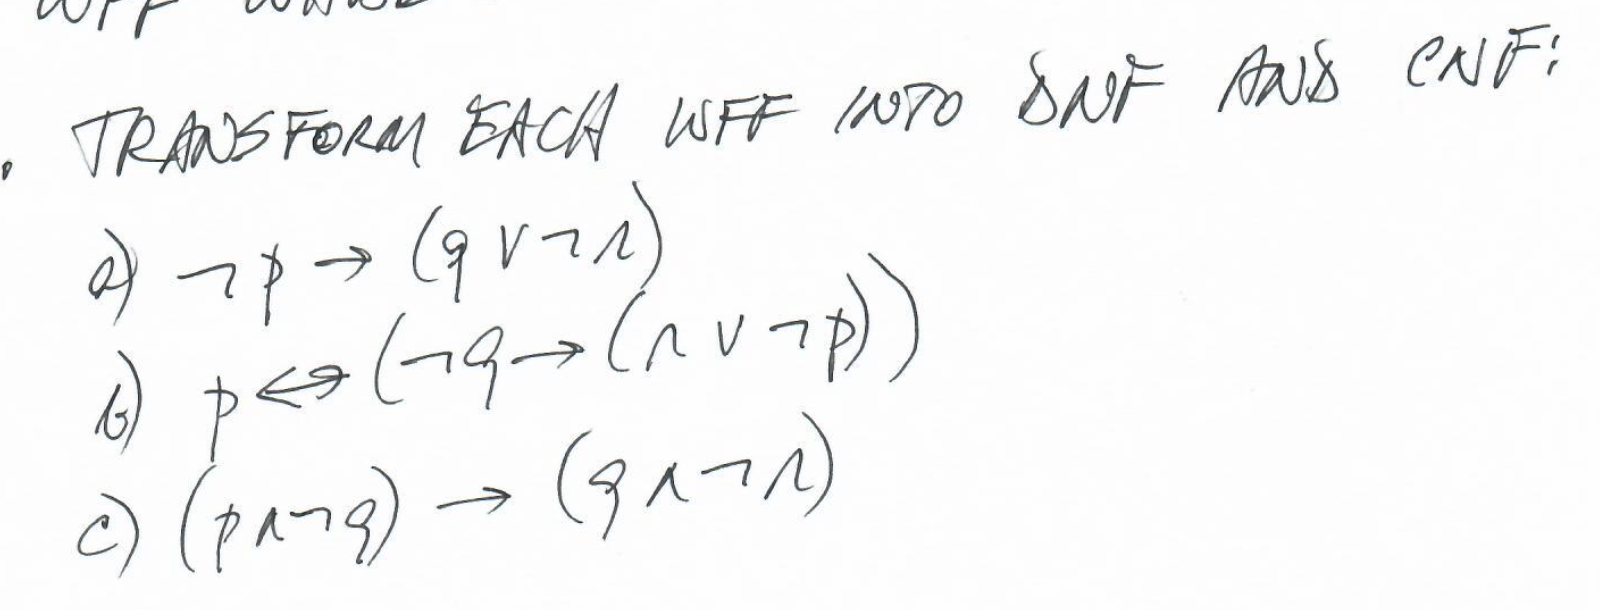 WFF
. TRANSFORM EACH WFF INTO DNF AND CNF:
a) ¬p → (q ∨ ¬r)
b) p ↔ (¬q → (r ∨ ¬p))
c) (p ∧ ¬q) → (q ∧ ¬r)